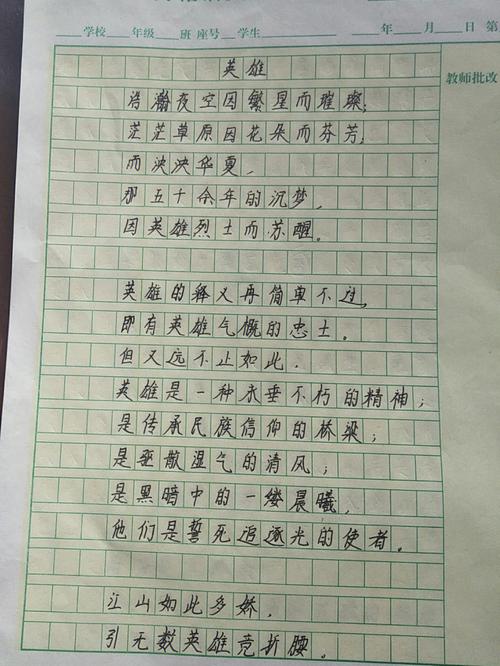 学校　年级　班 座号　学生　年　月　日 第
教师批改
英雄
浩瀚夜空因繁星而璀璨;
茫茫草原因花朵而芬芳;
而泱泱华夏,
那五十余年的沉梦,
因英雄烈士而苏醒。
英雄的释义再简单不过,
即有英雄气慨的忠士。
但又远不止如此.
英雄是一种永垂不朽的精神;
是传承民族信仰的桥梁;
是驱散湿气的清风;
是黑暗中的一缕晨曦,
他们是誓死追逐光的使者。
江山如此多娇,
引无数英雄竞折腰。